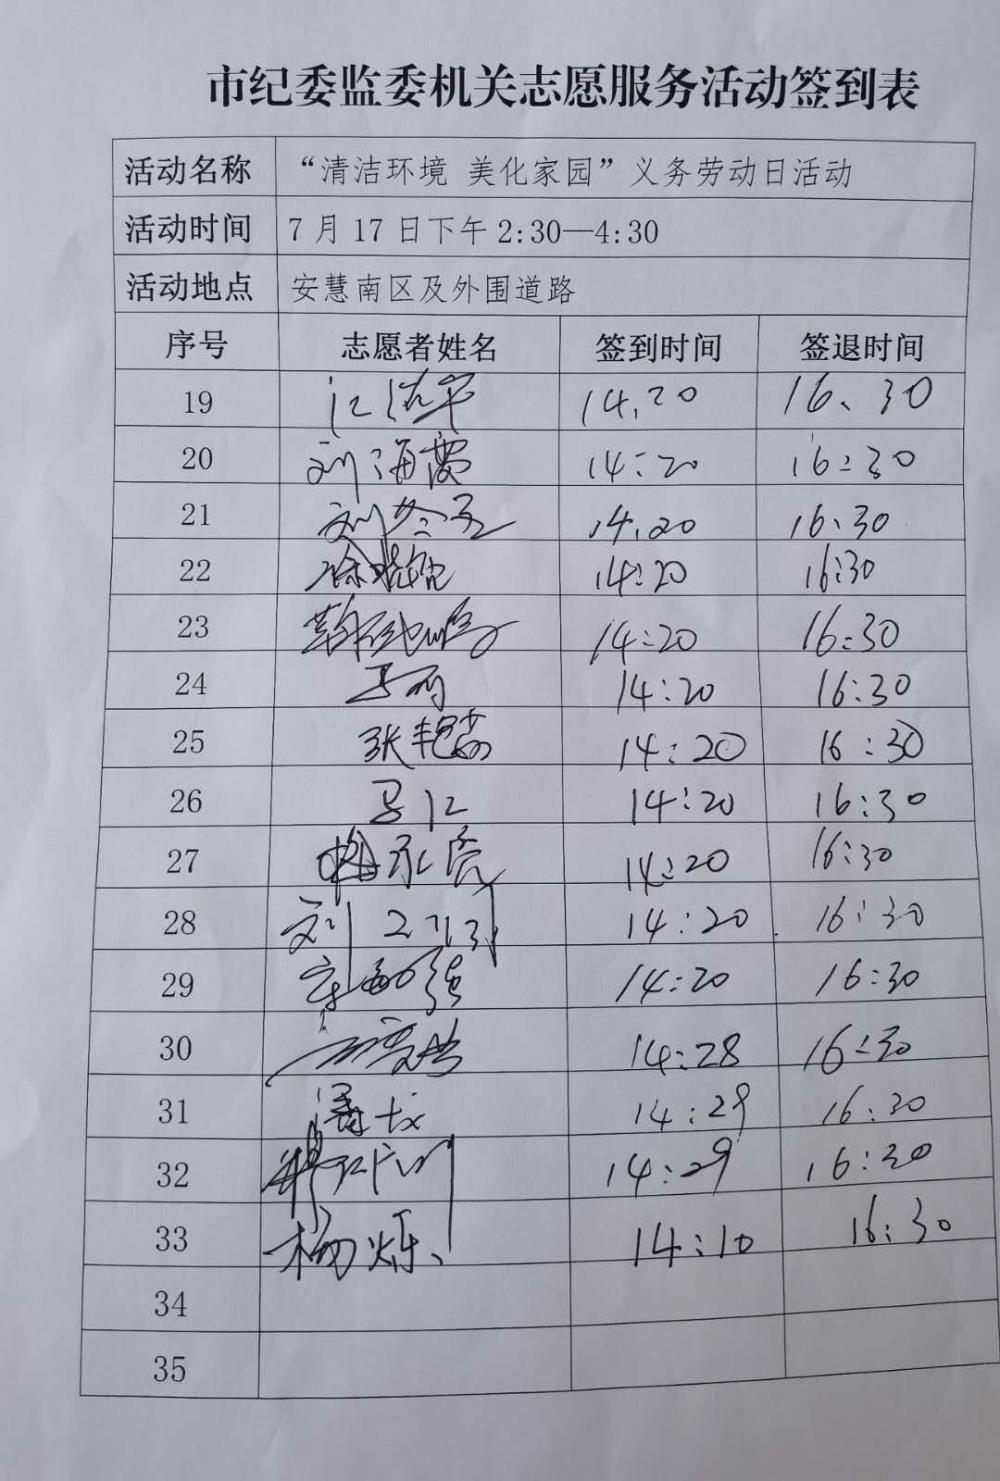 市纪委监委机关志愿服务活动签到表
活动名称 “清洁环境 美化家园”义务劳动日活动
活动时间 7月17日下午2:30—4:30
活动地点 安慧南区及外围道路
序号 志愿者姓名 签到时间 签退时间
19 14.20 16、30
20 刘海霞 14:20 16:30
21 14.20 16:30
22 14:20 16:30
23 14:20 16:30
24 14:20 16:30
25 张艳茹 14:20 16:30
26 马江 14:20 16:30
27 14:20 16:30
28 14:20 16:30
29 14:20 16:30
30 14:28 16:30
31 14:29 16:30
32 14:29 16:30
33 杨烁 14:10 16:30
34
35